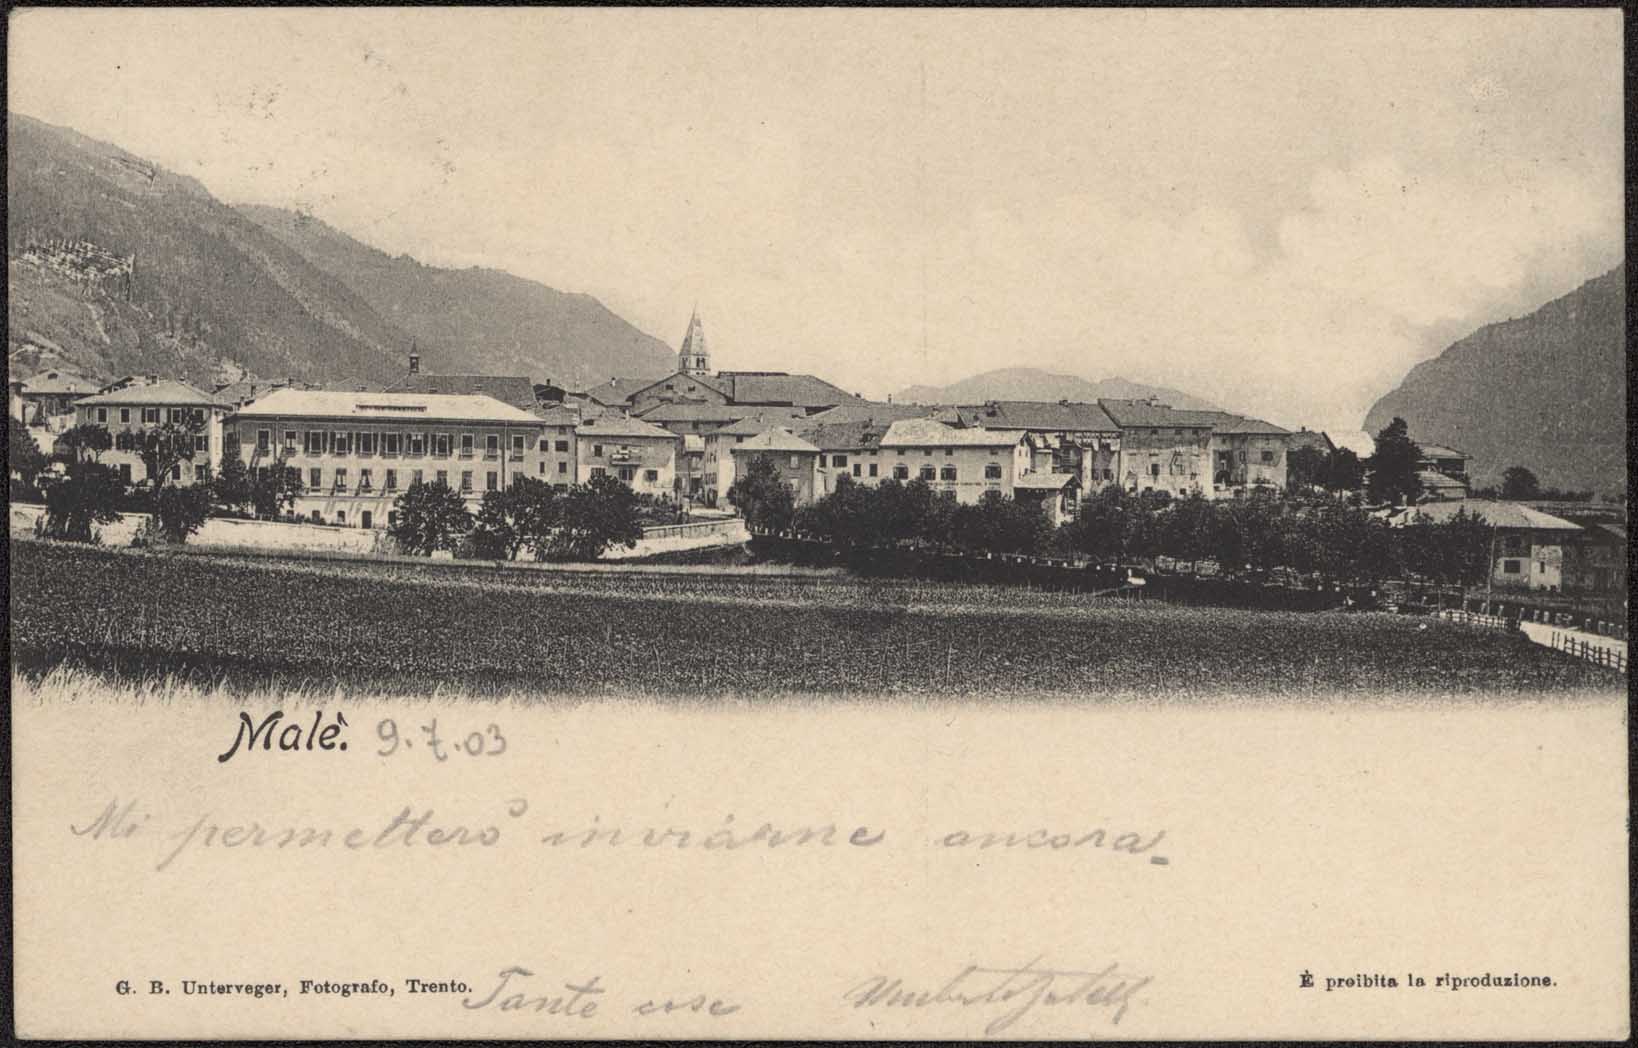 Malè. 9.7.03
Mi permetterò inviarne ancora
G. B. Unterveger, Fotografo, Trento. Tante cose Umberto
È proibita la riproduzione.